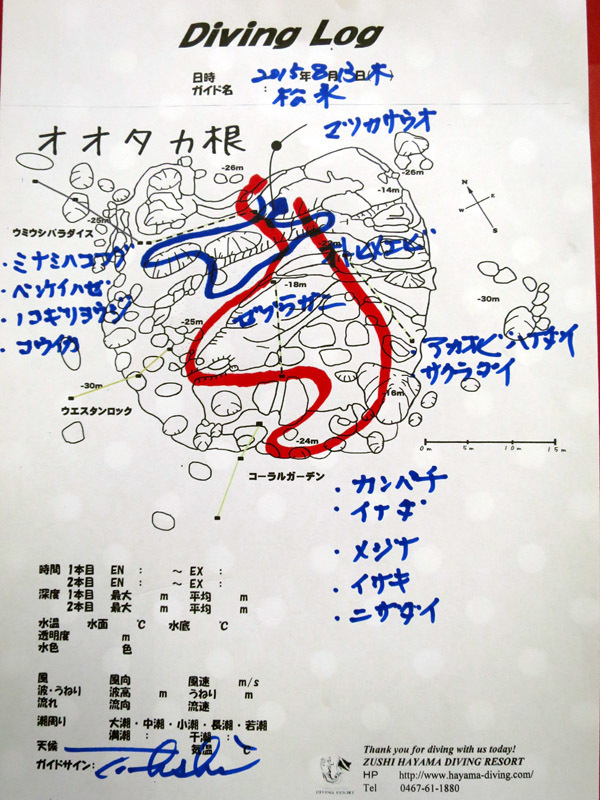 Diving Log
日時 2015年8月13日(木)
ガイド名 : 松永
オオタカ根
マツカサウオ
-26m
-26m
-14m
-25m
ウミウシパラダイス
N
W E
S
・ミナミハコフグ
・ベンケイハゼ
・ノコギリヨウジ
・コウイカ
オトヒメエビ
-18m
ゼブラガニ
-25m
-30m
アカオビハナダイ
サクラダイ
-30m
ウエスタンロック
-16m
-24m
コーラルガーデン
0m 5m 10m 15m
・カンパチ
・イナダ
・メジナ
・イサキ
・ニザダイ
時間 1本目 EN : ～ EX :
2本目 EN : ～ EX :
深度 1本目 最大 m 平均 m
2本目 最大 m 平均 m
水温 水面 ℃ 水底 ℃
透明度 m
水色 色
風 風向 風速 m/s
波・うねり 波高 m うねり m
流れ 流向 流速
潮周り 大潮・中潮・小潮・長潮・若潮
満潮 : 干潮 :
天候 気温 ℃
ガイドサイン:
Thank you for diving with us today!
ZUSHI HAYAMA DIVING RESORT
HP http://www.hayama-diving.com/
Tel 0467-61-1880